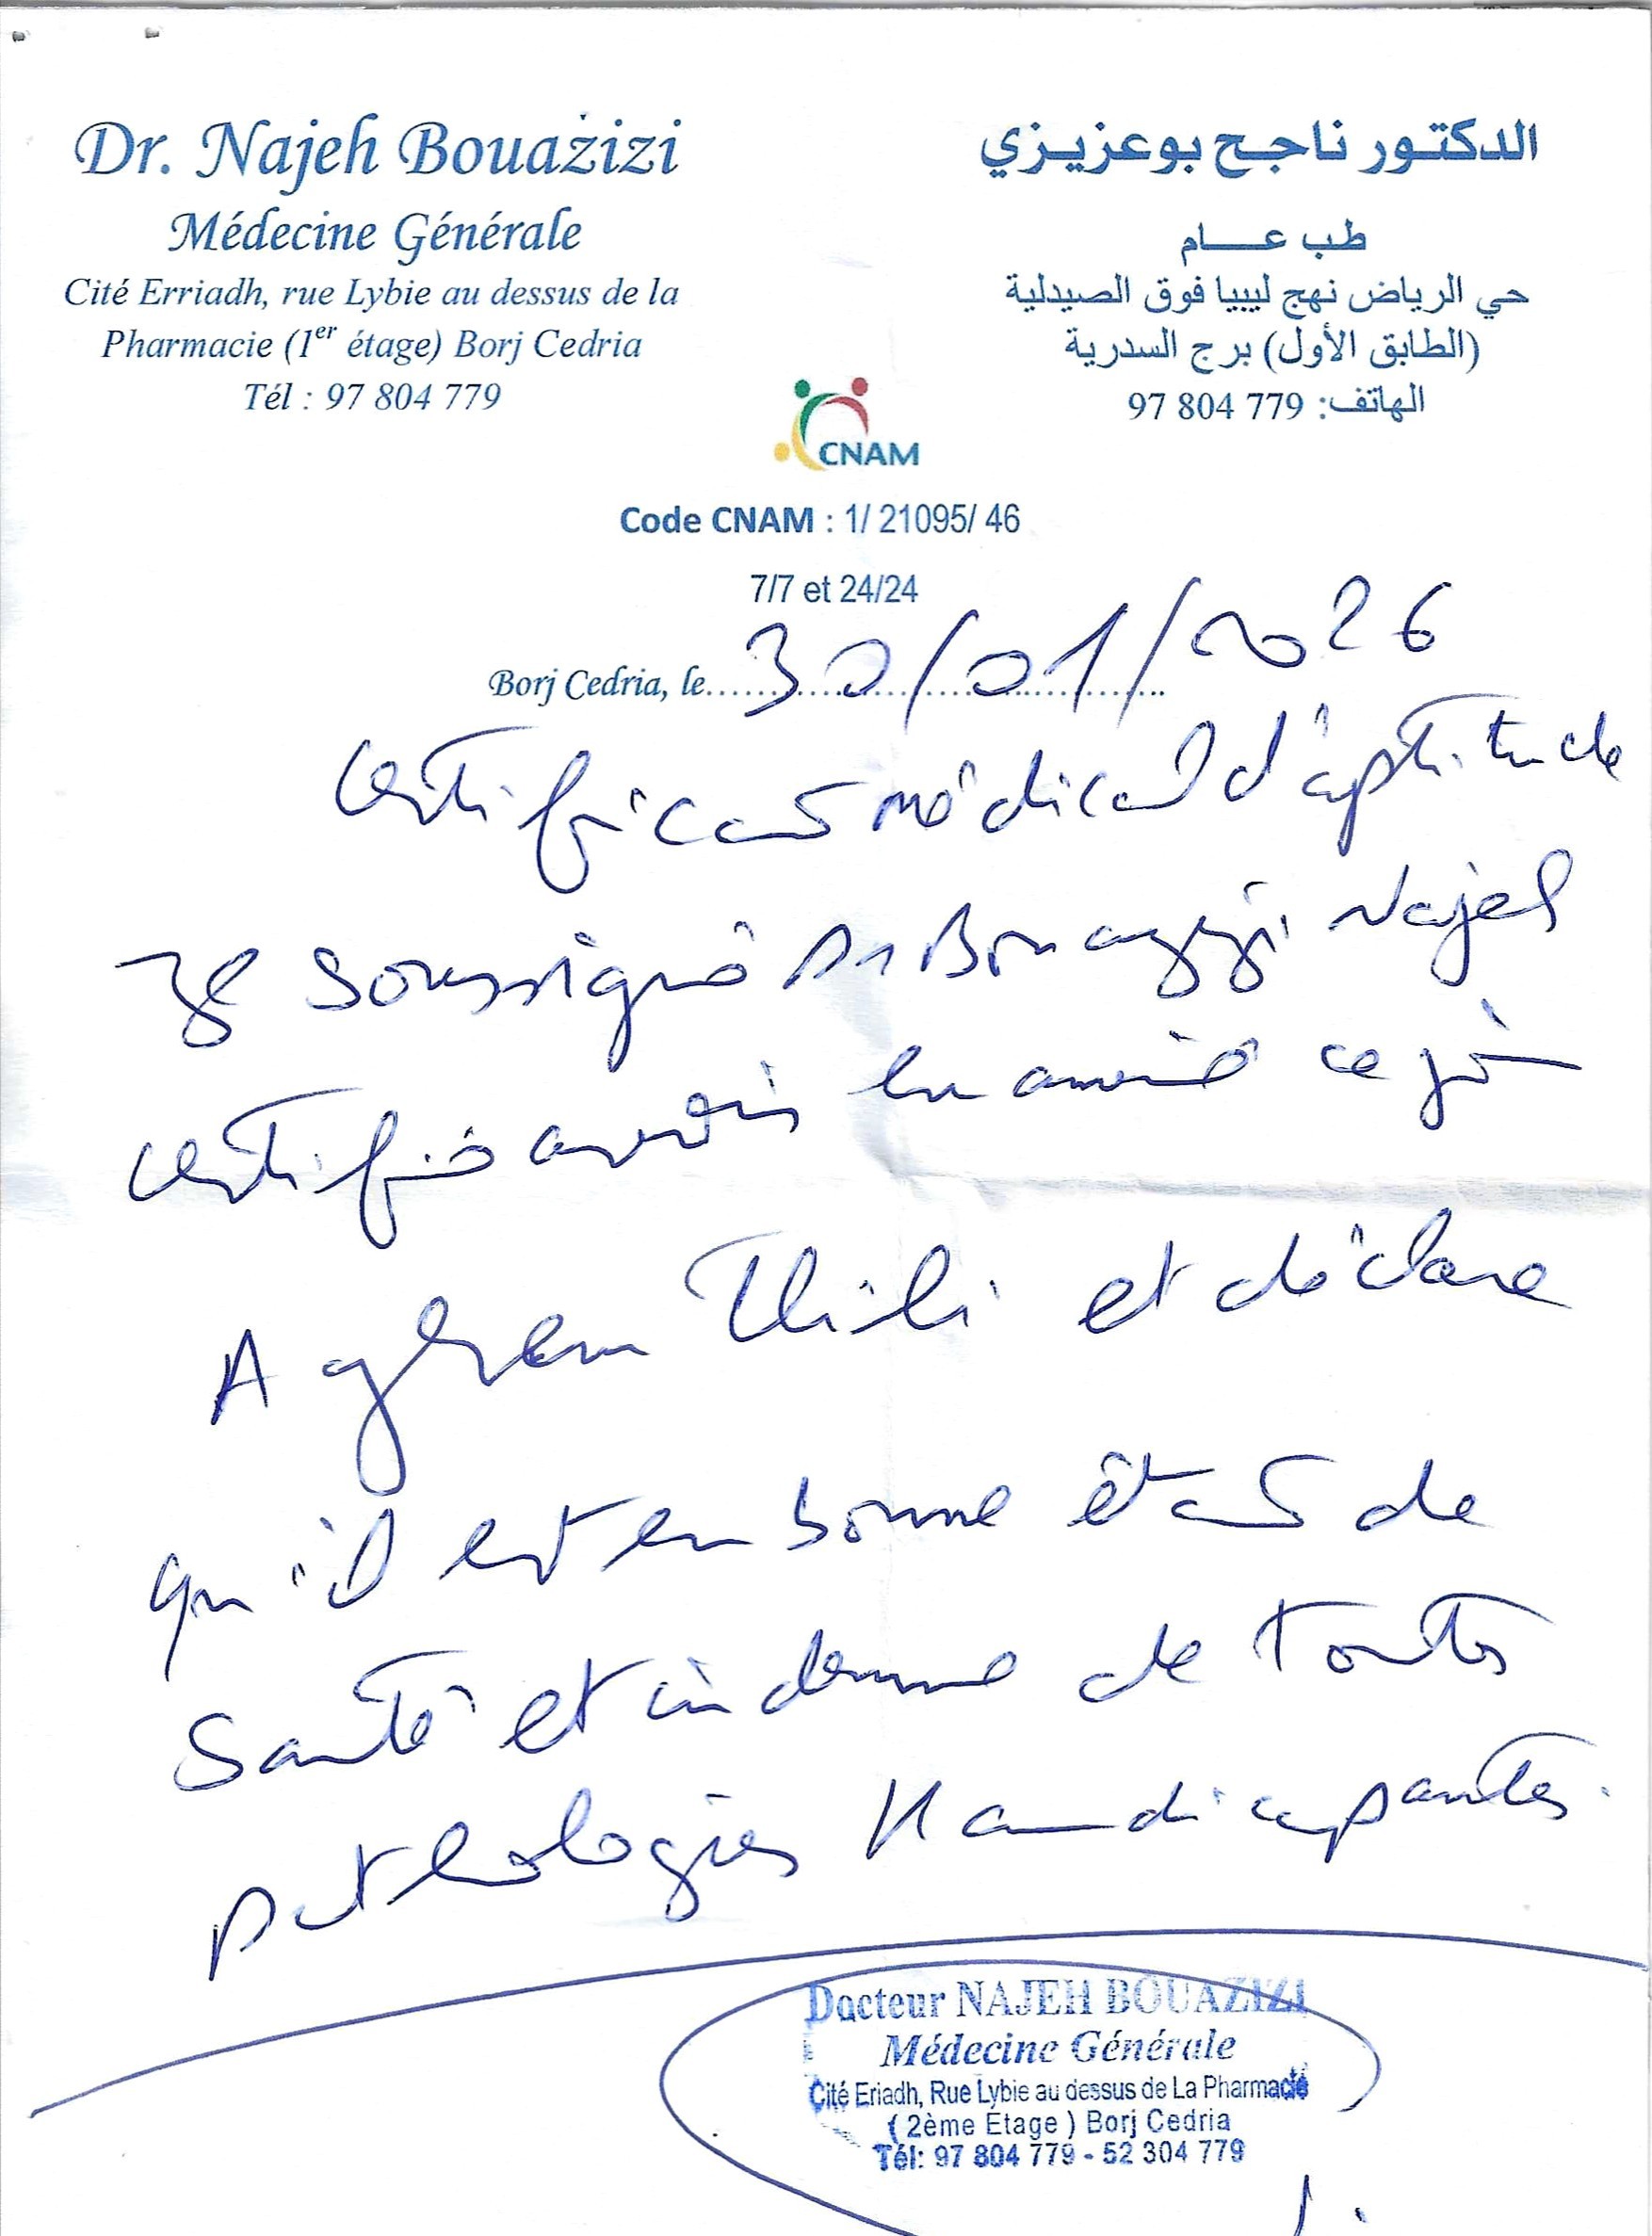 Dr. Najeh Bouazizi
Médecine Générale
Cité Erriadh, rue Lybie au dessus de la
Pharmacie (1er étage) Borj Cedria
Tél : 97 804 779
الدكتور ناجح بوعزيزي
طب عام
حي الرياض نهج ليبيا فوق الصيدلية
(الطابق الأول) برج السدرية
الهاتف: 779 804 97
CNAM
Code CNAM : 1/ 21095/ 46
7/7 et 24/24
Borj Cedria, le 30/01/2026
Certificat médical d'aptitude
Je soussigné Dr Bouazizi Najeh
certifie avoir examiné ce jour
Aghem Thili et déclare
qu'il est en bonne état de
santé et indemne de toutes
pathologies Handicapantes.
Docteur NAJEH BOUAZIZI
Médecine Générale
Cité Eriadh, Rue Lybie au dessus de La Pharmacie
( 2ème Etage ) Borj Cedria
Tél: 97 804 779 - 52 304 779